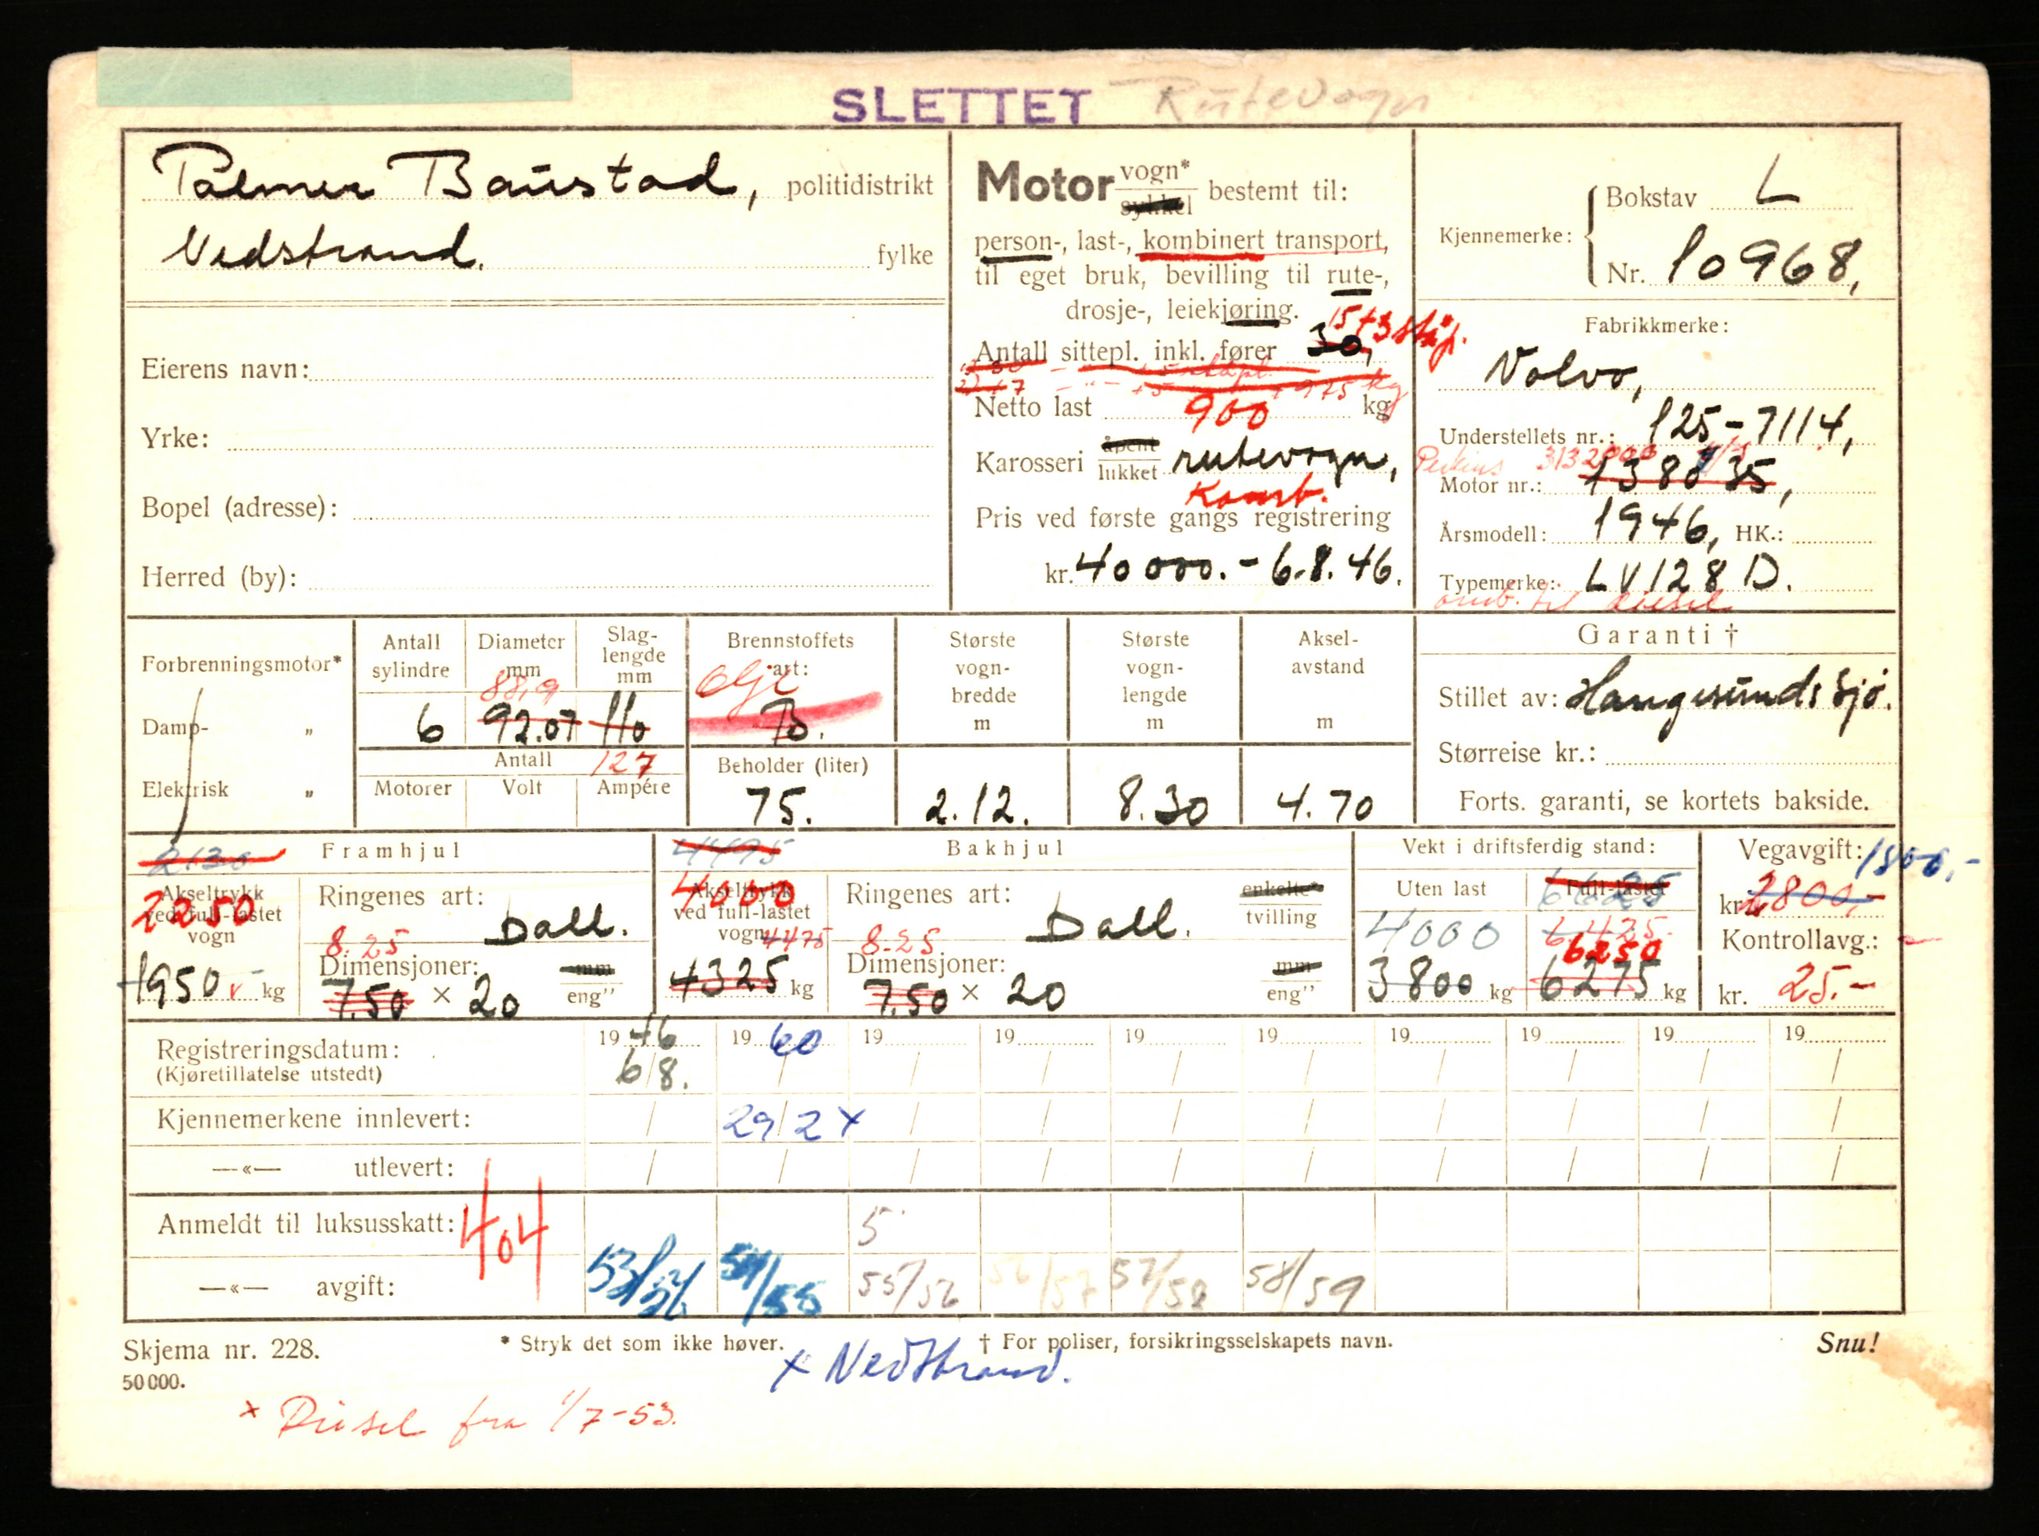 SLETTET Rutevogn
Palmer Baustad, politidistrikt
Nedstrand. fylke
Eierens navn:
Yrke:
Bopel (adresse):
Herred (by):
Motor vogn* sykkel bestemt til:
person-, last-, kombinert transport,
til eget bruk, bevilling til rute-,
drosje-, leiekjøring.
15+3 ståpl.
Antall sittepl. inkl. fører 30,
Netto last 900 kg
Karosseri åpent lukket rutevogn,
Komb.
Pris ved første gangs registrering
kr. 40000.- 6.8.46.
Kjennemerke: Bokstav L
Nr. 10968,
Fabrikkmerke:
Volvo,
Understellets nr.: 125-7114,
Perkins 3132000
Motor nr.: 138035,
Årsmodell: 1946, HK.:
Typemerke: LV128 D.
omb. til diesel
Forbrenningsmotor*
Damp- „
Elektrisk „
Antall sylindre
6
Diameter mm
88,9
92.07
Slag-lengde mm
110
127
Antall
Motorer Volt Ampére
Brennstoffets art:
Olje
B.
Beholder (liter)
75.
Største vogn-bredde m
2.12.
Største vogn-lengde m
8.30
Aksel-avstand m
4.70
Garanti †
Stillet av: Haugesunds Sjø.
Størreise kr.:
Forts. garanti, se kortets bakside.
2130 Framhjul
Akseltrykk ved full-lastet vogn
2250
1950 kg
Ringenes art:
Ball.
8.25
Dimensjoner: mm
7.50 × 20 eng”
4475 Bakhjul
4000
Akseltrykk ved full-lastet vogn 4475
4325 kg
Ringenes art: enkelte* tvilling
Ball.
8.25
Dimensjoner: mm
7.50 × 20 eng”
Vekt i driftsferdig stand:
Uten last Full-lastet
4000
3800 kg
6425
6250
6275 kg
Vegavgift: 1800,-
kr. 2800,-
Kontrollavg.:
kr. 25.-
Registreringsdatum: 1946 1960 19 19 19 19 19 19 19 19
(Kjøretillatelse utstedt) 6/8. / / / / / / / / /
Kjennemerkene innlevert: / 29/2 x / / / / / / / /
—«— utlevert: / / / / / / / / / /
Anmeldt til luksusskatt: 404 5
—«— avgift: 53/54 54/55 55/56 56/57 57/58 58/59
Skjema nr. 228. * Stryk det som ikke høver. † For poliser, forsikringsselskapets navn. Snu!
50 000.
x Nedstrand.
x Diesel fra 1/7-53.